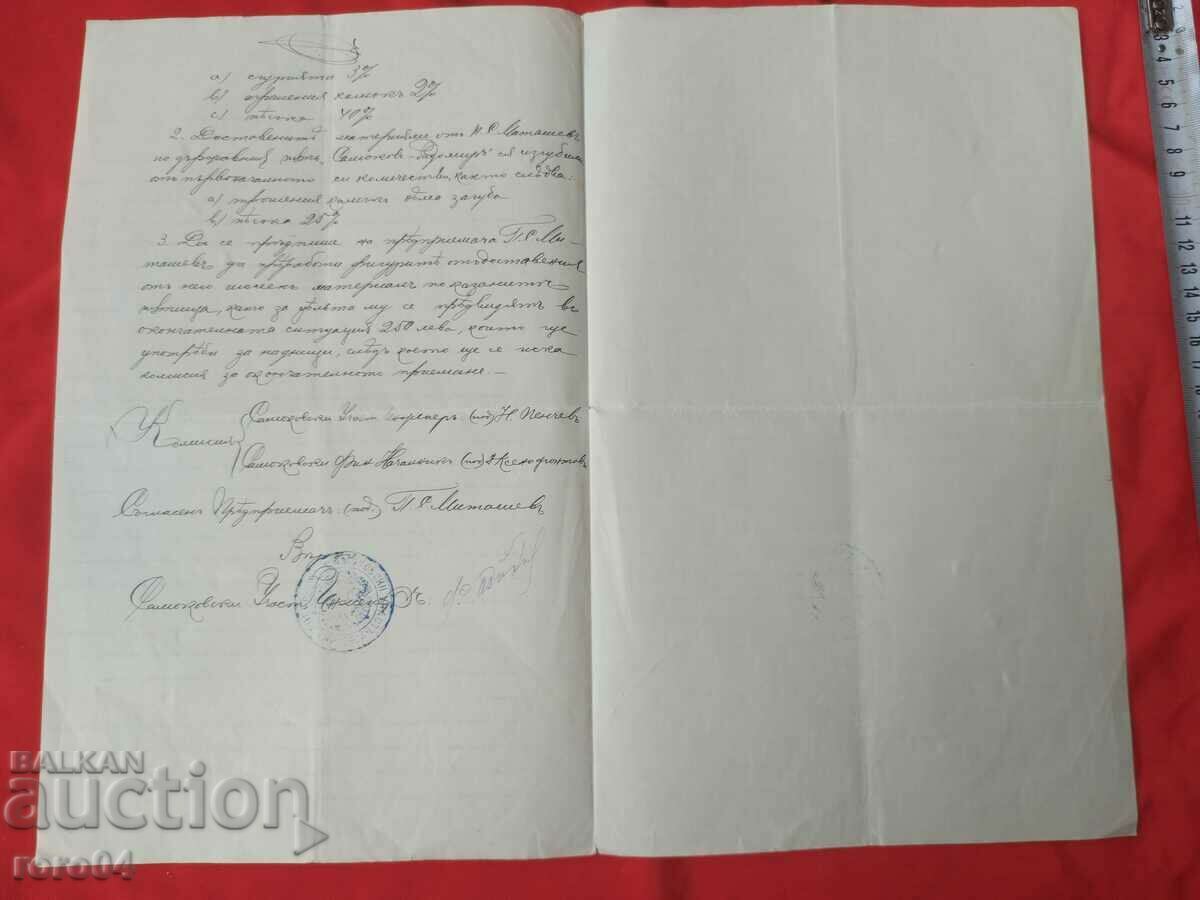 а) сгурията 3%
в) трошения камъкъ 2%
с) пѣсъка 40%
2. Доставенитѣ материали отъ П. С. Миташевъ
по държавния пѫть „Самоковъ - Радомиръ" сѫ изгубили
отъ първоначалното си количество, както слѣдва:
а) трошения камъкъ нѣма загуба
в) пѣсъка 25%
3. Да се предпише на прѣдприемача П. С. Ми-
ташевъ да прѣработи фигуритѣ отъ доставения
отъ него материалъ по казанитѣ
пѫтища, като за цѣльта му се прѣдвидятъ въ
окончателната ситуация 250 лева, които ще
употрѣби за надници, слѣдъ което ще се иска
комисия за окончателното приемане. —
Комисия
Самоковски Участ. Инженеръ: (под) Н. Пенчевъ
Самоковски Фин. Началникъ (под) Ксенофонтовъ
Съгласенъ Прѣдприемачъ: (под.) П. С. Миташевъ
Вѣрно
Самоковски Участ. Инженеръ
BALKAN
auction
roro04